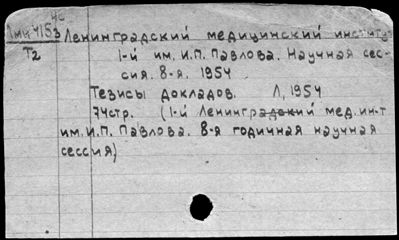 4с
Ленинградский медицинский институт
Т2 1-й им. И.П. Павлова. Научная сес-
сия. 8-я. 1954
Тезисы докладов. Л, 1954
74стр. (1-й Ленинградский мед. ин-т
им. И.П. Павлова. 8-я годичная научная
сессия)